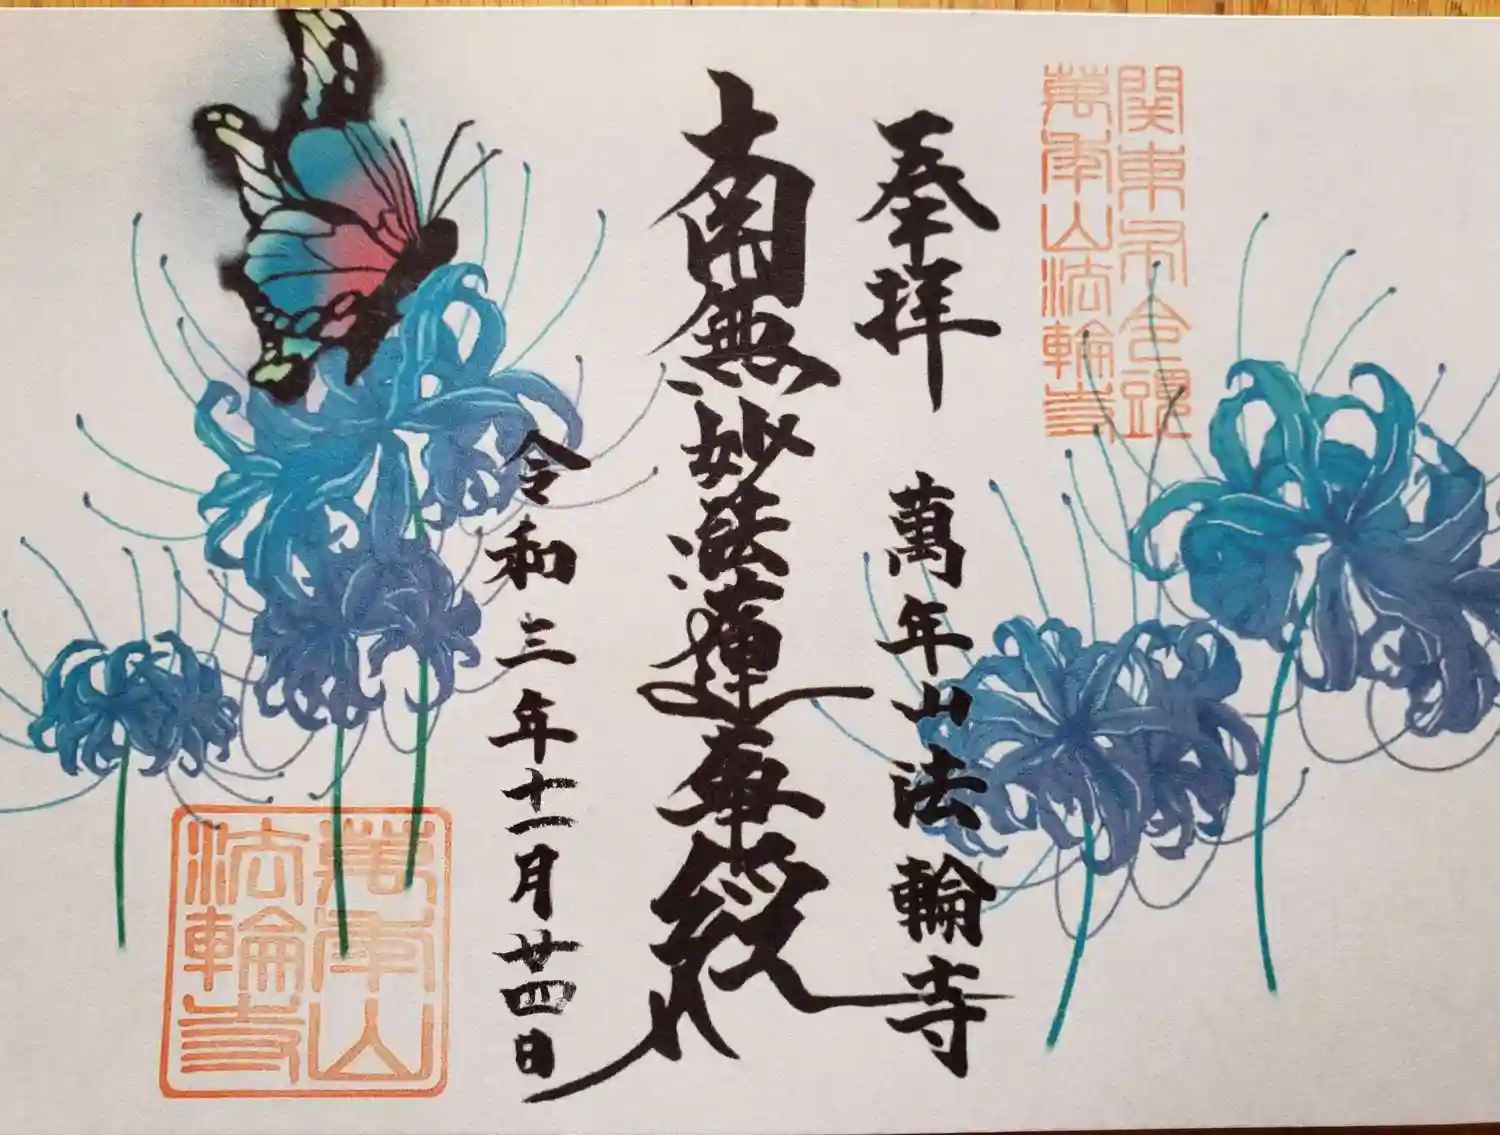 関東不受頭
萬年山法輪寺
奉拝 萬年山法輪寺
南無妙法蓮華経
令和三年十一月廿四日
萬年山
法輪寺